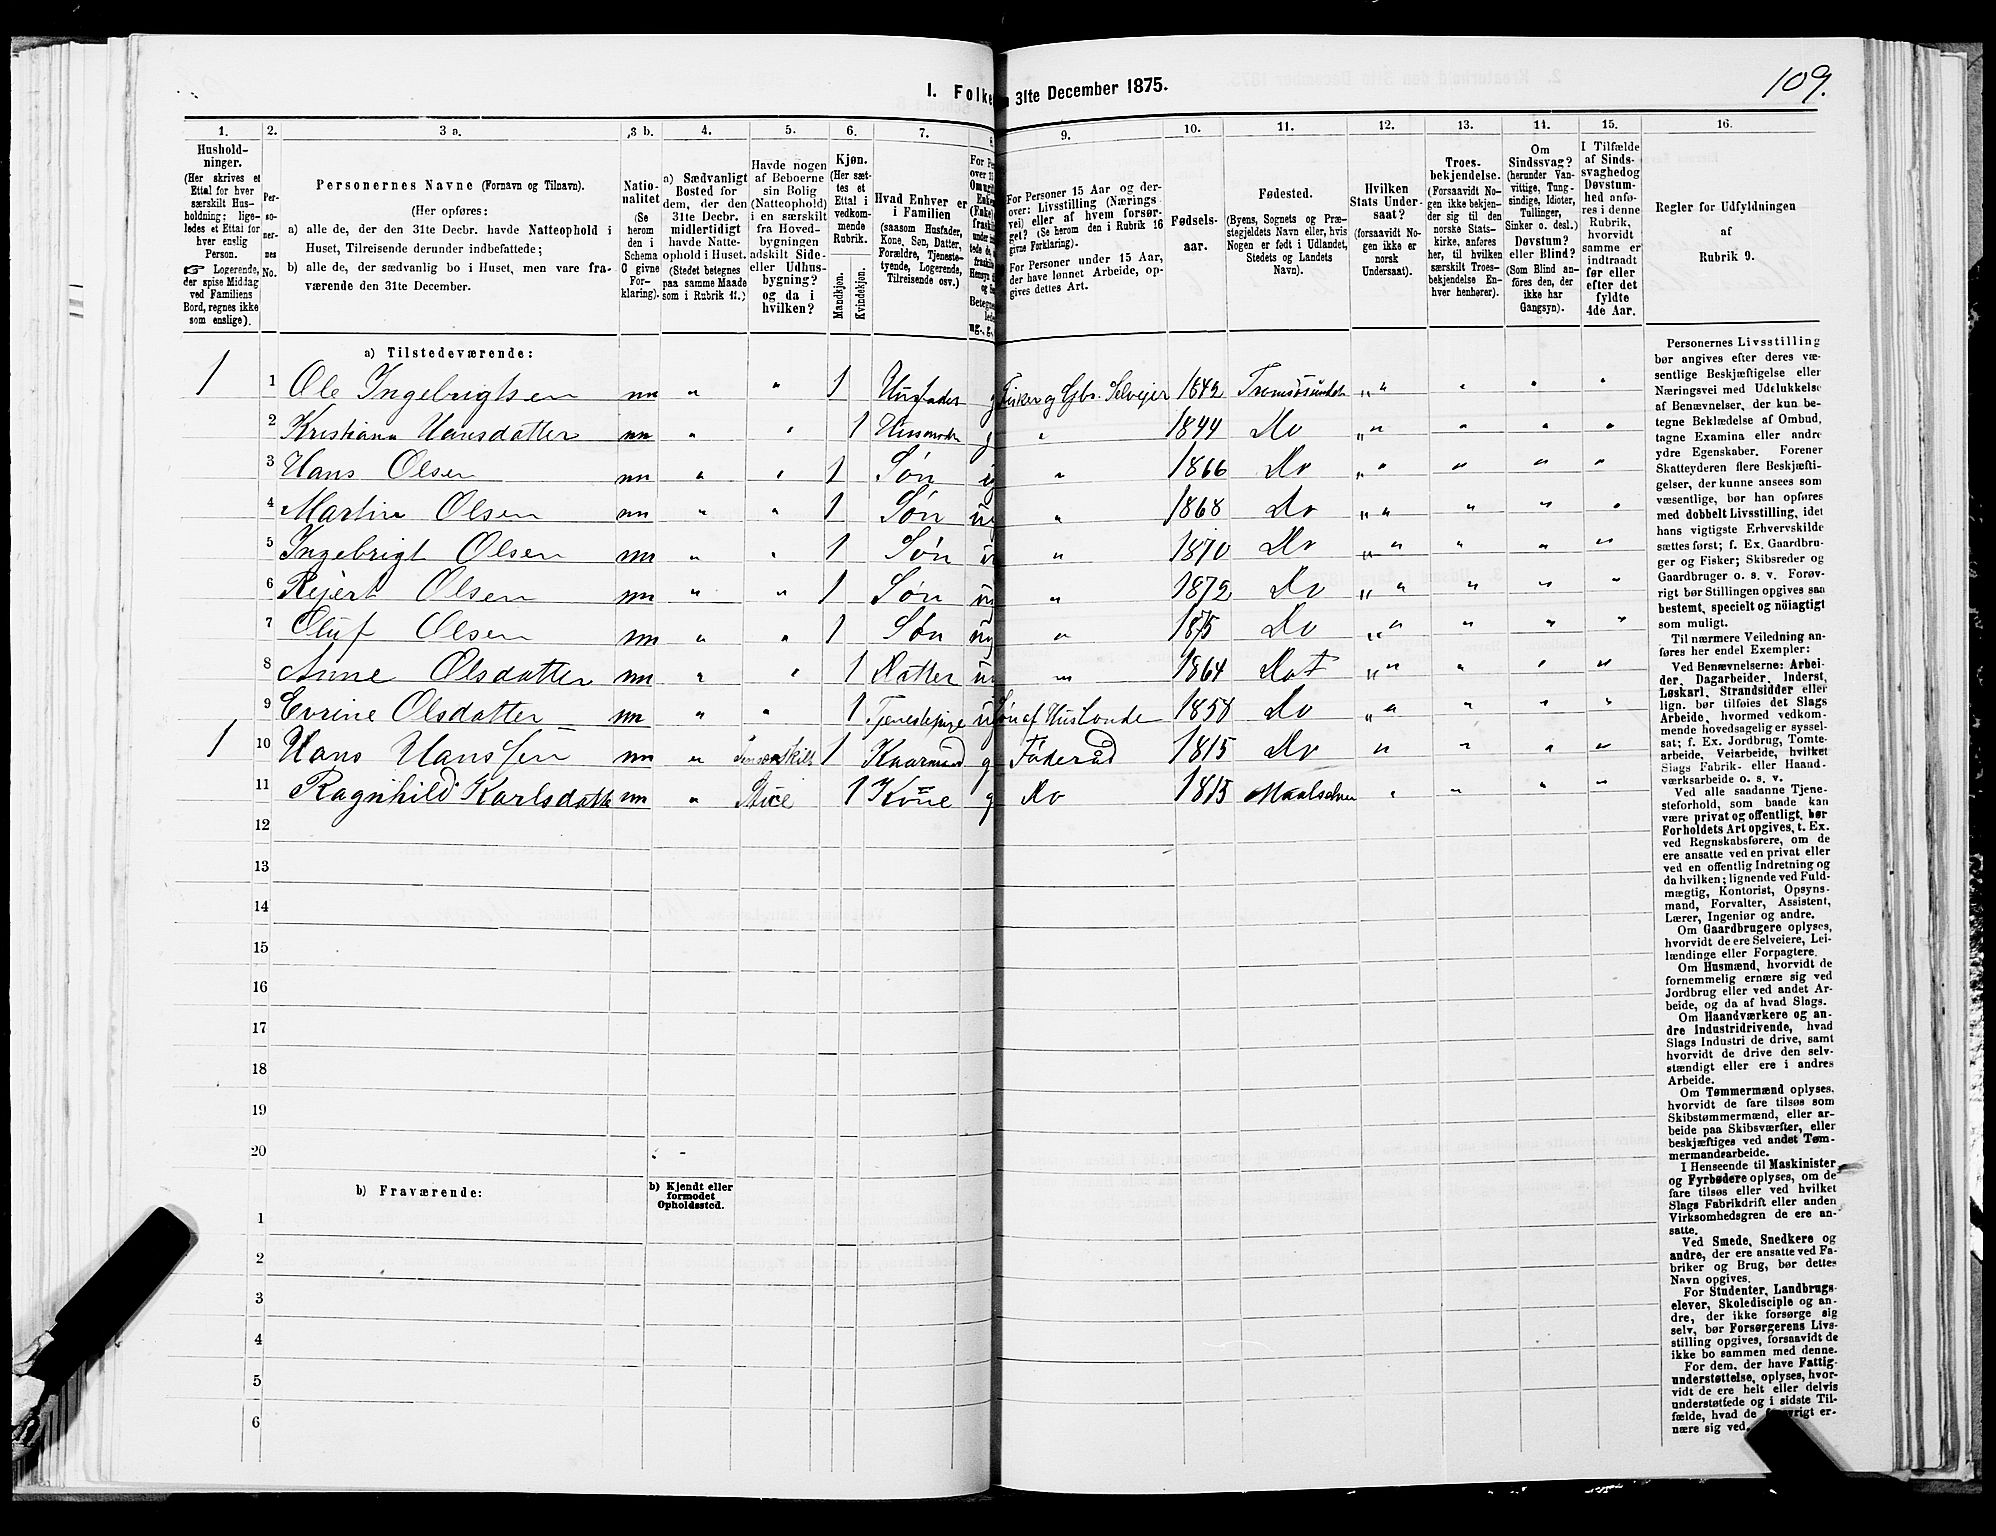 109.
I. Folke
31te December 1875.
1. 2. 3 a. 3 b. 4. 5. 6. 7. 8 9. 10. 11. 12. 13. 14. 15. 16.
Hushold-
ninger.
(Her skrives et
Ettal for hver
særskilt Hus-
holdning; lige-
ledes et Ettal for
hver enslig
Person.
☞ Logerende,
der spise Middag
ved Familiens
Bord, regnes ikke
som enslige).
Per-
so-
ner-
nes
No.
Personernes Navne (Fornavn og Tilnavn).
(Her opføres:
a) alle de, der den 31te Decbr. havde Natteophold i
Huset, Tilreisende derunder indbefattede;
b) alle de, der sædvanlig bo i Huset, men vare fra-
værende den 31te December.
Natio-
nalitet
(Se
herom
den i
Schema
O givne
For-
klaring).
a) Sædvanligt
Bosted for
dem, der den
31te Decbr.
midlertidigt
havde Natte-
ophold i Huset.
(Stedet betegnes
paa samme Maade
som i Rubrik 11.)
Havde nogen
af Beboerne
sin Bolig
(Natteophold)
i en særskilt
fra Hoved-
bygningen
adskilt Side-
eller Udhus-
bygning?
og da i
hvilken?
Kjøn.
(Her sæt-
tes et
Ettal i
vedkom-
mende
Rubrik.
Mandkjøn.
Kvindekjøn.
Hvad Enhver er
i Familien
(saasom Husfader,
Kone, Søn, Datter,
Forældre, Tjeneste-
tyende, Logerende,
Tilreisende osv.)
For Personer 15 Aar og der-
over: Livsstilling (Nærings
vei) eller af hvem forsør-
get? (Se herom den i Rubrik 16
givne Forklaring).
For Personer under 15 Aar,
der have lønnet Arbeide, op-
gives dettes Art.
Fødsels-
aar.
Fødested.
(Byens, Sognets og Præ-
stegjeldets Navn eller, hvis
Nogen er født i Udlandet,
Stedets og Landets
Navn).
Hvilken
Stats Under-
saat?
(forsaavidt No-
gen ikke er
norsk
Undersaat).
Troes-
bekjendelse.
(Forsaavidt No-
gen ikke bekjen-
der sig til den
norske Stats-
kirke, anføres
her, til hvilken
særskilt Troes-
bekjendelse En-
hver henhører).
Om
Sindssvag?
(herunder Van-
vittige, Tung-
sindige, Idioter,
Tullinger,
Sinker o. desl.)
Døvstum?
eller Blind?
(Som Blind an-
føres den, der
ikke har
Gangsyn).
I Tilfælde
af Sinds-
svaghed og
Døvstum-
hed anfø-
res i denne
Rubrik,
hvorvidt
samme er
indtraadt
før eller
efter det
fyldte
4de Aar.
Regler for Udfyldningen
af
Rubrik 9.
a) Tilstedeværende:
1 1 Ole Ingebrigtsen nn " " 1 Husfader g Fisker og Gbr. Selveier 1842 Tromsøsundet " " " " "
2 Kristiana Hansdatter nn " " 1 Husmoder g " 1844 Do " " " " "
3 Hans Olsen nn " " 1 Søn ug " 1866 Do " " " " "
4 Martin Olsen nn " " 1 Søn ug " 1868 Do " " " " "
5 Ingebrigt Olsen nn " " 1 Søn u " 1870 Do " " " " "
6 Rejert Olsen nn " " 1 Søn ug " 1872 Do " " " " "
7 Oluf Olsen nn " " 1 Søn ug " 1875 Do " " " " "
8 Anne Olsdatter nn " " 1 Datter ug " 1864 Do " " " " "
9 Evrine Olsdatter nn " " 1 Tjenestepige u 1858 Do " " " " "
1 10 Hans Hanssen nn " 1 Kaarmand g Føderåd 1815 Do " " " "
11 Ragnhild Karlsdatte nn " Stue 1 Kone g Do 1815 Maalselven " " " "
12
13
14
15
16
17
18
19
20
b) Fraværende:
b) Kjendt eller
formodet
Opholdssted.
1
2
3
4
5
6
Personernes Livsstilling
bør angives efter deres væ-
sentlige Beskjæftigelse eller
Næringsvei med Udelukkelse
af Benævnelser, der kun be-
tegne Beklædelse af Ombud,
tagne Examina eller andre
ydre Egenskaber. Forener
Skatteyderen flere Beskjæfti-
gelser, der kunne ansees som
væsentlige, bør han opføres
med dobbelt Livsstilling, idet
hans vigtigste Erhvervskilde
sættes først; f. Ex. Gaardbru-
ger og Fisker; Skibsreder og
Gaardbruger o. s. v. Forøv-
rigt bør Stillingen opgives saa
bestemt, specielt og nöiagtigt
som muligt.
Til nærmere Veiledning an-
føres her endel Exempler:
Ved Benævnelserne: Arbei-
der, Dagarbeider, Inderst,
Løskarl, Strandsidder eller
lign. bør tilføies det Slags
Arbeide, hvormed vedkom-
mende hovedsagelig er syssel-
sat; f. Ex. Jordbrug, Tomte-
arbeide, Veiarbeide, hvilket
Slags Fabrik- eller Haand-
værksarbeide o. s. v.
Ved alle saadanne Tjene-
steforhold, som baade kan
være privat og offentligt, bør
Forholdets Art opgives, t. Ex.
ved Regnskabsførere, om de
ere ansatte ved en privat eller
ved en offentlig Indretning og
da hvilken; lignende ved Fuld-
mægtig, Kontorist, Opsyns-
mand, Forvalter, Assistent,
Lærer, Ingeniør og andre.
Om Gaardbrugere oplyses,
hvorvidt de ere Selveiere, Lei-
lændinge eller Forpagtere.
Om Husmænd, hvorvidt de
fornemmelig ernære sig ved
Jordbrug eller ved andet Ar-
beide, og da af hvad Slags.
Om Haandværkere og an-
dre Industridrivende, hvad
Slags Industri de drive, samt
hvorvidt de drive den selv-
stændigt eller ere i andres
Arbeide.
Om Tømmermænd oplyses,
hvorvidt de fare tilsøs som
Skibstømmermænd, eller ar-
beide paa Skibsværfter, eller
beskjæftiges ved andet Tøm-
mermandsarbeide.
I Henseende til Maskinister
og Fyrbødere oplyses, om de
fare tilsøs eller ved hvilket
Slags Fabrikdrift eller anden
Virksomhedsgren de ere an-
satte.
Ved Smede, Snedkere og
andre, der ere ansatte ved Fa-
briker og Brug, bør dettes
Navn opgives.
For Studenter, Landbrugs-
elever, Skoledisciple og an-
dre, der ikke forsørge sig
selv, bør Forsørgerens Livs-
stilling opgives, forsaavidt de
ikke bo sammen med denne.
For dem, der have Fattig-
understøttelse, oplyses, hvor-
vidt de ere helt eller delvis
understøttede og i sidste Til-
fælde, hvad de forøvrigt er-
nære sig ved.